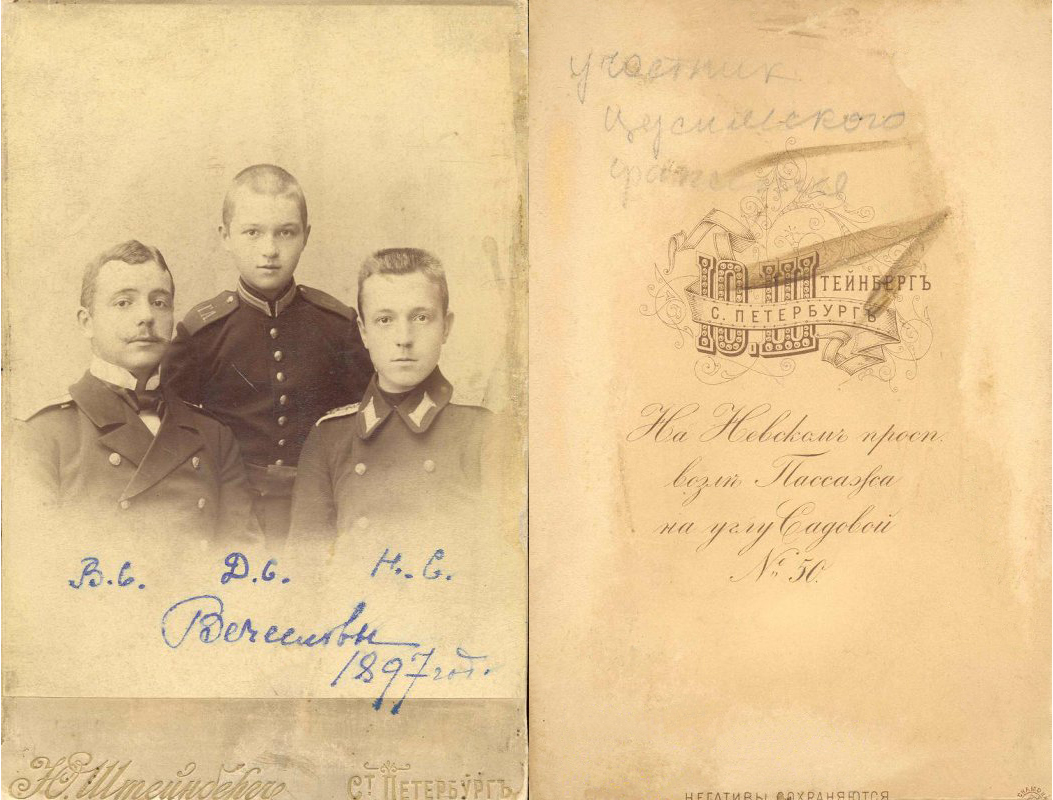 В.С. Д.С. Н.С.
Вечесловы
1897 год.
Ю. Штейнбергъ
СТ ПЕТЕРБУРГЪ
участник
Цусимского
Ю.ШТЕЙНБЕРГЪ
С. ПЕТЕРБУРГЪ
На Невскомъ просп.
возлѣ Пассажа
на углу Садовой
№ 50.
НЕГАТИВЫ СОХРАНЯЮТСЯ